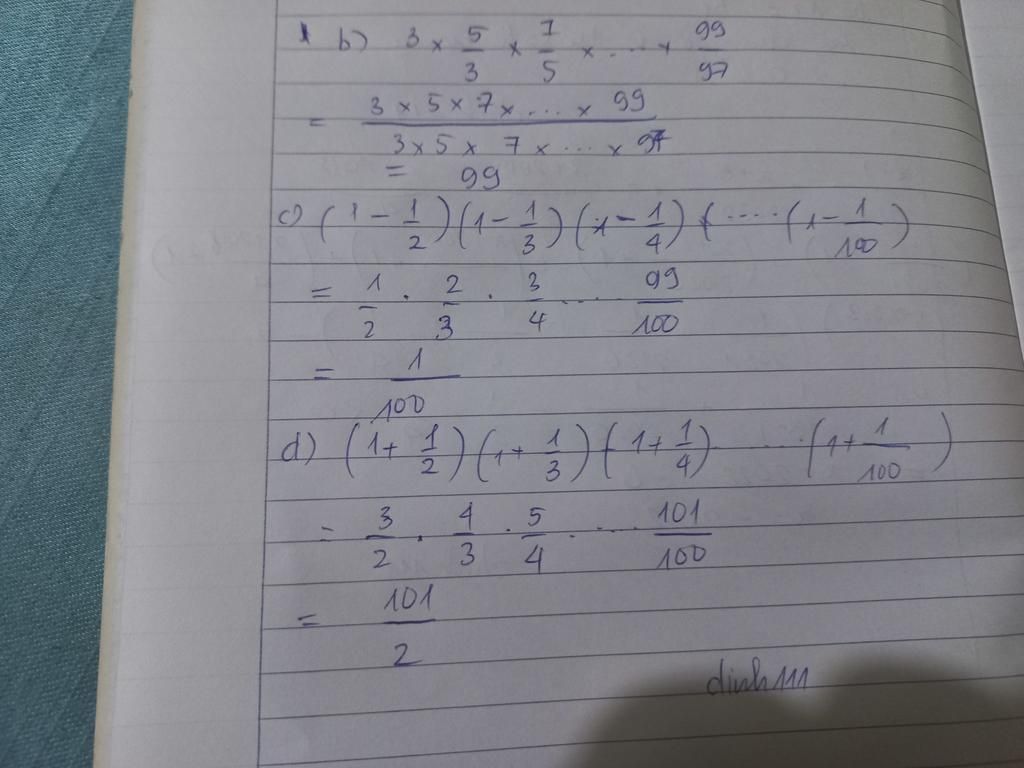 1 b) 3 × 5/3 × 7/5 × .... × 99/97
= (3 × 5 × 7 × .... × 99)/(3 × 5 × 7 × .... × 97)
= 99
c) (1 - 1/2)(1 - 1/3)(1 - 1/4)(.....(1 - 1/100)
= 1/2 . 2/3 . 3/4 ..... 99/100
= 1/100
d) (1 + 1/2)(1 + 1/3)(1 + 1/4) ..... (1 + 1/100)
= 3/2 . 4/3 . 5/4 . .... 101/100
= 101/2
dinh111